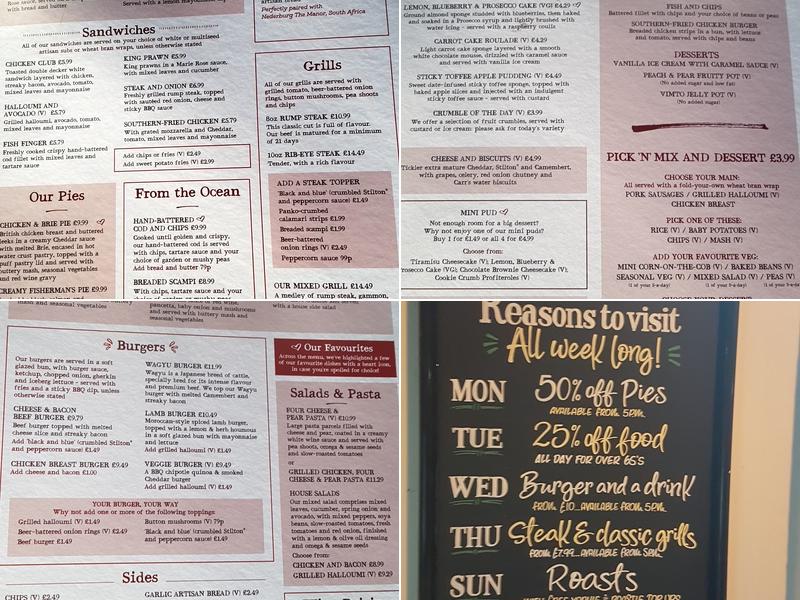 Sandwiches
All of our sandwiches are served on your choice of white or multiseed
artisan subs or wheat bran wraps, unless otherwise stated
CHICKEN CLUB £5.99
Toasted double decker white
sandwich layered with chicken,
streaky bacon, avocado, tomato,
mixed leaves and mayonnaise
HALLOUMI AND
AVOCADO (V) £5.79
Grilled halloumi, avocado, tomato,
mixed leaves and mayonnaise
FISH FINGER £5.79
Freshly cooked crispy hand-battered
cod fillet with mixed leaves and
tartare sauce
KING PRAWN £5.99
King prawns in a Marie Rose sauce,
with mixed leaves and cucumber
STEAK AND ONION £6.99
Freshly grilled rump steak, topped
with sautéed red onion, cheese and
sticky BBQ sauce
SOUTHERN-FRIED CHICKEN £5.79
With grated mozzarella and Cheddar,
tomato, mixed leaves and mayonnaise
Add chips or fries (V) £2.49
Add sweet potato fries (V) £2.99
Our Pies
CHICKEN & BRIE PIE £9.99
British chicken breast and buttered
leeks in a creamy Cheddar sauce
with melted Brie, encased in hot
water crust pastry, topped with a
puff pastry lid and served with
buttery mash, seasonal vegetables
and red wine gravy
CREAMY FISHERMAN'S PIE £9.99
From the Ocean
HAND-BATTERED
COD AND CHIPS £9.99
Cooked until golden and crispy,
our hand-battered cod is served
with chips, tartare sauce and your
choice of garden or mushy peas
Add bread and butter 79p
BREADED SCAMPI £8.99
With chips, tartare sauce and your
choice of garden or mushy peas
perfectly paired with
Nederburg The Manor, South Africa
Grills
All of our grills are served with
grilled tomato, beer-battered onion
rings, button mushrooms, pea shoots
and chips
8oz RUMP STEAK £10.99
This classic cut is full of flavour.
Our beef is matured for a minimum
of 21 days
10oz RIB-EYE STEAK £14.49
Tender, with a rich flavour
ADD A STEAK TOPPER
'Black and blue' (crumbled Stilton®
and peppercorn sauce) £1.49
Panko-crumbed
calamari strips £1.99
Breaded scampi £1.99
Beer-battered
onion rings (V) £2.49
Peppercorn sauce 99p
OUR MIXED GRILL £14.49
A medley of rump steak, gammon,
LEMON, BLUEBERRY & PROSECCO CAKE (VG) £4.29
Ground almond sponge studded with blueberries, then baked
and soaked in a Prosecco syrup and lightly brushed with
water icing - served with a raspberry coulis
CARROT CAKE ROULADE (V) £4.29
Light carrot cake sponge layered with a smooth
white chocolate mousse, drizzled with caramel sauce
and served with vanilla ice cream
STICKY TOFFEE APPLE PUDDING (V) £4.49
Sweet date-infused sticky toffee sponge, topped with
baked apple slices and injected with an indulgent
sticky toffee sauce - served with custard
CRUMBLE OF THE DAY (V) £3.99
We offer a selection of fruit crumbles, served with
custard or ice cream: please ask for today's variety
CHEESE AND BISCUITS (V) £4.99
Tickler extra mature Cheddar, Stilton® and Camembert,
with grapes, celery, red onion chutney and
Carr's water biscuits
MINI PUD
Not enough room for a big dessert?
Why not enjoy one of our mini puds?
Buy 1 for £1.49 or all 4 for £4.99
Choose from:
Tiramisu Cheesecake (V); Lemon, Blueberry &
Prosecco Cake (VG); Chocolate Brownie Cheesecake (V);
Cookie Crumb Profiteroles (V)
FISH AND CHIPS
Battered fillet with chips and your choice of beans or peas
SOUTHERN-FRIED CHICKEN BURGER
Breaded chicken strips in a bun, with lettuce
and tomato, served with chips and beans
DESSERTS
VANILLA ICE CREAM WITH CARAMEL SAUCE (V)
PEACH & PEAR FRUITY POT (V)
(No added sugar and low fat)
VIMTO JELLY POT (V)
(No added sugar)
PICK 'N' MIX AND DESSERT £3.99
CHOOSE YOUR MAIN:
All served with a fold-your-own wheat bran wrap
PORK SAUSAGES / GRILLED HALLOUMI (V)
CHICKEN BREAST
PICK ONE OF THESE:
RICE (V) / BABY POTATOES (V)
CHIPS (V) / MASH (V)
ADD YOUR FAVOURITE VEG:
MINI CORN-ON-THE-COB (V) / BAKED BEANS (V)
SEASONAL VEG (V) / MIXED SALAD (V) / PEAS (V)
(1 of your 5-a-day) (1 of your 5-a-day) (1 of your 5-a-day)
mash and seasonal vegetables
pancetta, baby onion and mushroom
and served with buttery mash and
seasonal vegetables
a house side salad
Burgers
Our burgers are served in a soft
glazed bun, with burger sauce,
ketchup, chopped onion, gherkin
and iceberg lettuce - served with
fries and a sticky BBQ dip, unless
otherwise stated
CHEESE & BACON
BEEF BURGER £9.79
Beef burger topped with melted
cheese slice and streaky bacon
Add 'black and blue' (crumbled Stilton®
and peppercorn sauce) £1.49
CHICKEN BREAST BURGER £9.49
Add cheese and bacon £1.00
WAGYU BURGER £11.99
Wagyu is a Japanese breed of cattle,
specially bred for its intense flavour
and premium beef. We top our Wagyu
burger with melted Camembert and
streaky bacon
LAMB BURGER £10.49
Moroccan-style spiced lamb burger,
topped with a lemon & herb houmous
in a soft glazed bun with mayonnaise
and lettuce
Add grilled halloumi £1.49
VEGGIE BURGER (V) £9.49
A BBQ chipotle quinoa & smoked
Cheddar burger
Add grilled halloumi £1.49
YOUR BURGER, YOUR WAY
Why not add one or more of the following toppings
Grilled halloumi (V) £1.49
Beer-battered onion rings (V) £2.49
Beef burger £1.49
Button mushrooms (V) 79p
'Black and blue' (crumbled Stilton®
and peppercorn sauce) £1.49
Sides
CHIPS (V) £2.49
GARLIC ARTISAN BREAD (V) £2.49
Our Favourites
Across the menu, we've highlighted a few
of our favourite dishes with a heart icon,
in case you're spoiled for choice!
Salads & Pasta
FOUR CHEESE &
PEAR PASTA (V) £10.99
Large pasta parcels filled with
cheese and pear, coated in a creamy
white wine sauce and served with
pea shoots, omega & sesame seeds
and slow-roasted tomatoes
or
GRILLED CHICKEN, FOUR
CHEESE & PEAR PASTA £11.29
HOUSE SALADS
Our mixed salad comprises mixed
leaves, cucumber, spring onion and
avocado, with mixed peppers, soya
beans, slow-roasted tomatoes, fresh
tomatoes and red onion, finished
with a lemon & olive oil dressing
and omega & sesame seeds
Choose from:
CHICKEN AND BACON £8.99
GRILLED HALLOUMI (V) £9.29
Reasons to visit
All week long!
MON 50% off Pies
AVAILABLE FROM 5PM
TUE 25% off food
ALL DAY FOR OVER 65'S
WED Burger and a drink
FROM £10...AVAILABLE FROM 5PM.
THU Steak & classic grills
FROM £7.99...AVAILABLE FROM 5PM.
SUN Roasts